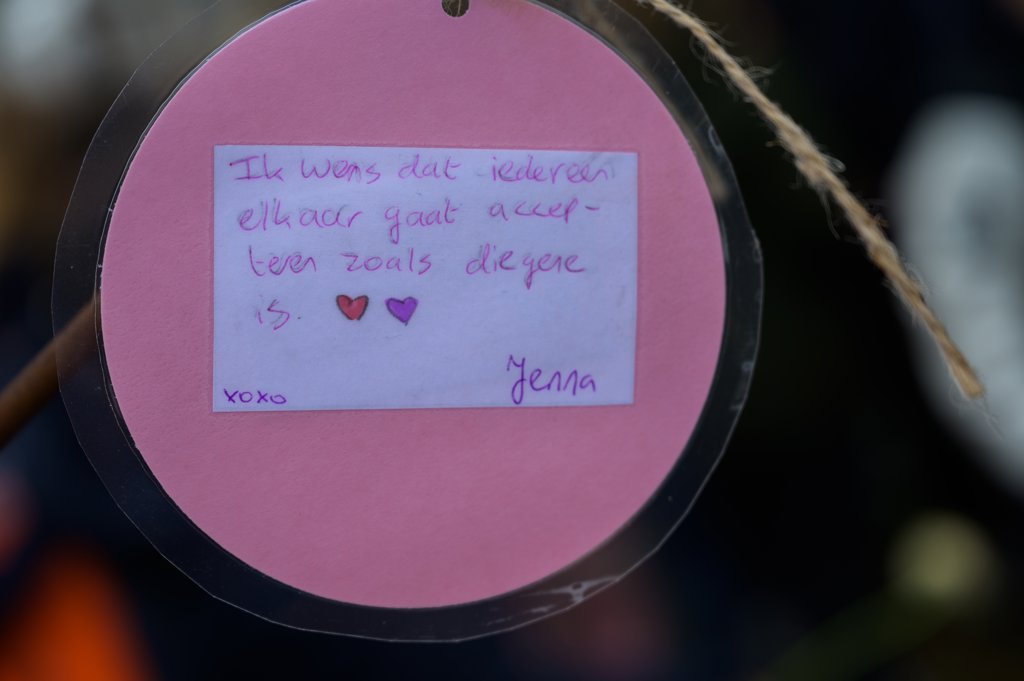 Ik wens dat iedereen
elkaar gaat accep-
teren zoals diegene
is.
Jenna
xoxo